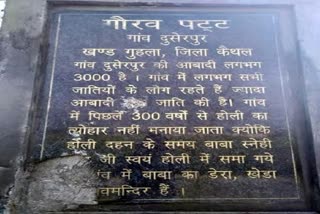 गौरव पट्ट
गांव दुसेरपुर
खण्ड गुहला, जिला कैथल
गांव दुसेरपुर की आबादी लगभग
3000 है। गांव में लगभग सभी
जातियों के लोग रहते हैं ज्यादा
आबादी जाति की है। गांव
में पिछले 300 वर्षो से होली का
त्योहार नहीं मनाया जाता क्योंकि
होली दहन के समय बाबा स्नेही
जी स्वयं होली में समा गये
में बाबा का डेरा, खेडा
हैं।